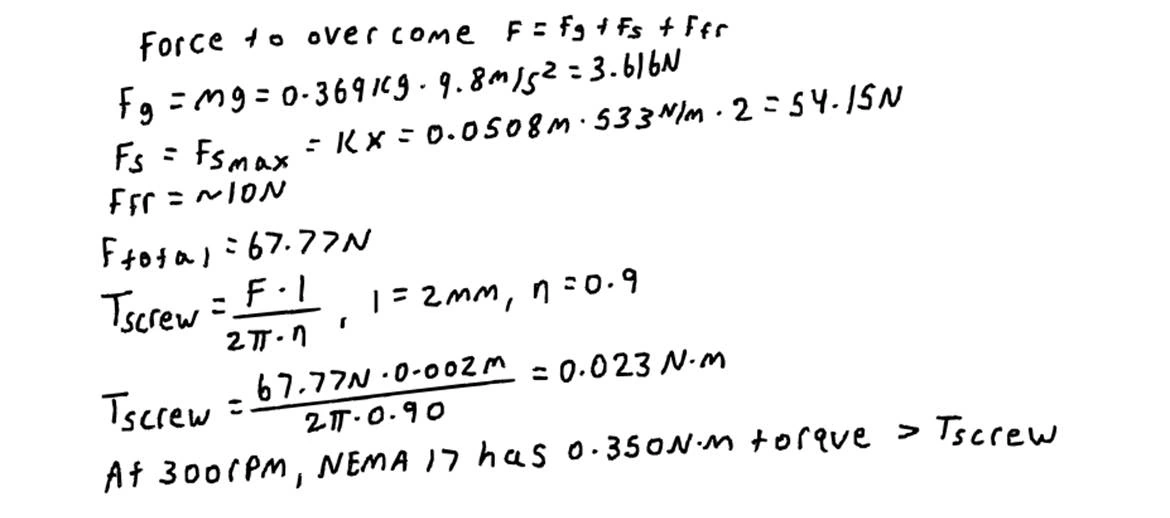 Force to overcome F = Fg + Fs + Ffr
Fg = mg = 0.369 kg · 9.8m/s² = 3.616N
Fs = Fsmax = Kx = 0.0508m · 533 N/m · 2 = 54.15N
Ffr = ~10N
Ftotal = 67.77N
Tscrew = F · l / 2π · η , l = 2mm, η = 0.9
Tscrew = 67.77N · 0.002m / 2π · 0.90 = 0.023 N·m
At 300rpm, NEMA 17 has 0.350N·m torque > Tscrew